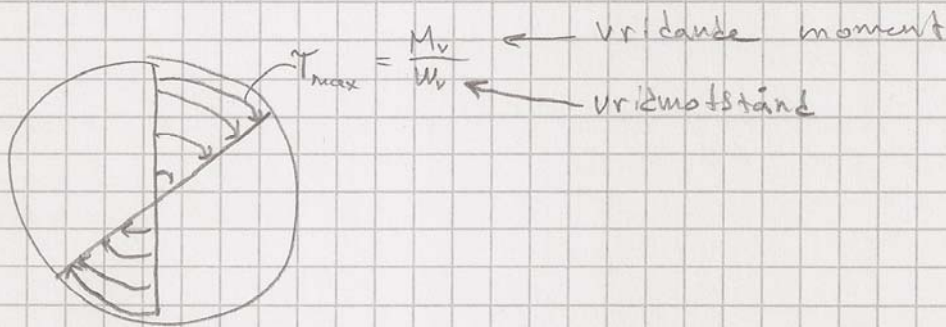 τmax = Mv / Wv ← vridande moment
← vridmotstånd